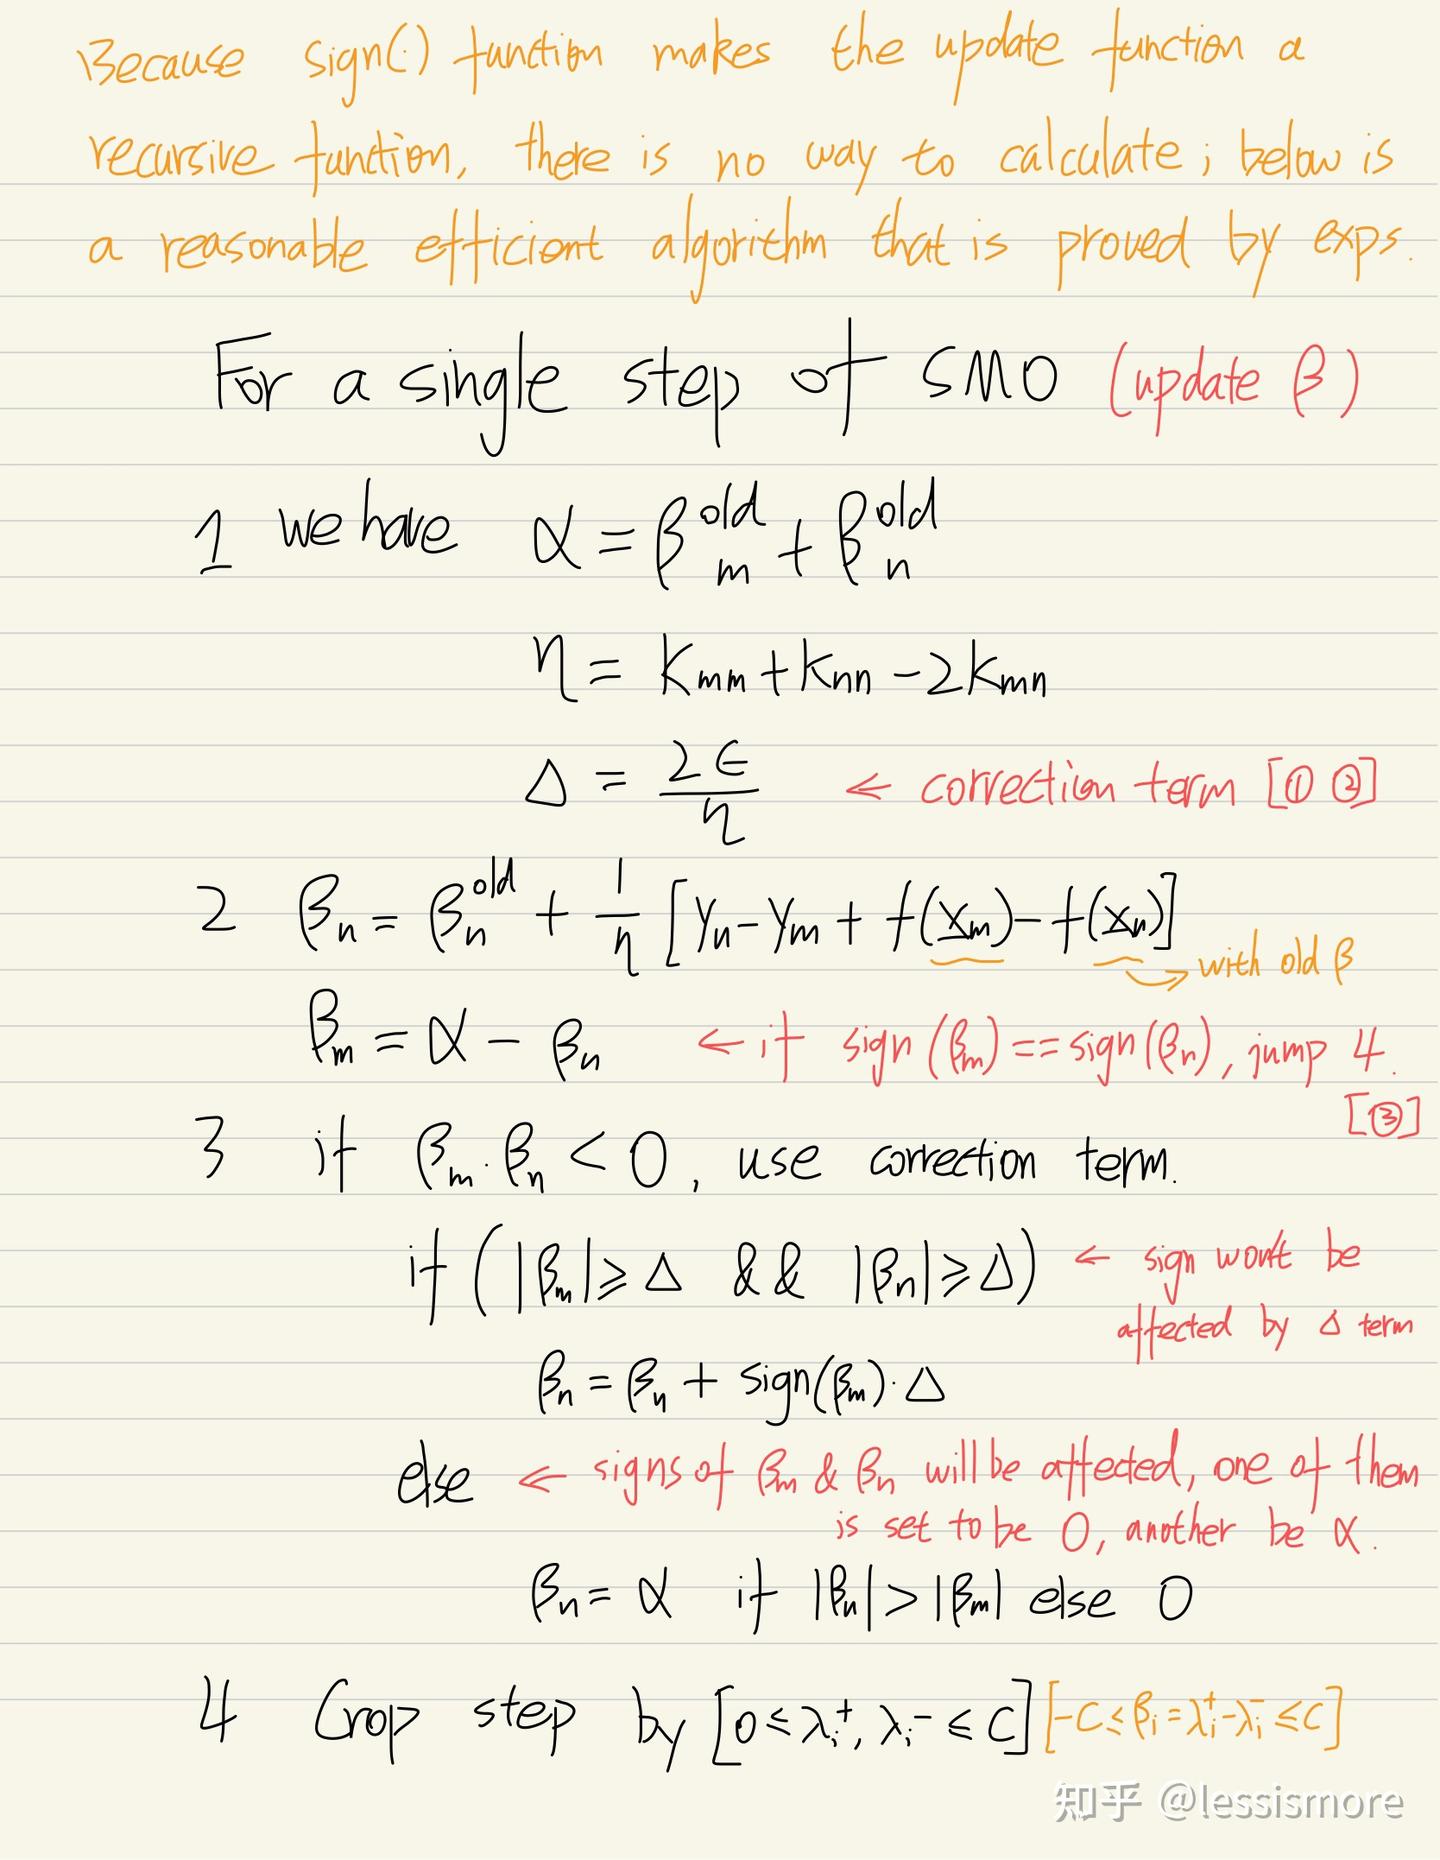 Because sign(·) function makes the update function a
recursive function, there is no way to calculate; below is
a reasonable efficient algorithm that is proved by exps.
For a single step of SMO (update β)
1 we have α = β_m^old + β_n^old
η = K_mm + K_nn - 2K_mn
Δ = 2ϵ/η ← correction term [① ②]
2 β_n = β_n^old + 1/η [y_n - y_m + f(x_m) - f(x_n)]
→ with old β
β_m = α - β_n ← if sign(β_m) == sign(β_n), jump 4.
[③]
3 if β_m · β_n < 0, use correction term.
if (|β_m| ⩾ Δ && |β_n| ⩾ Δ) ← sign won't be
affected by Δ term
β_n = β_n + sign(β_m) · Δ
else ← signs of β_m & β_n will be affected, one of them
is set to be 0, another be α.
β_n = α if |β_n| > |β_m| else 0
4 Crop step by [0 ≤ λ_i^+, λ_i^- ≤ C] [-C ≤ β_i = λ_i^+ - λ_i^- ≤ C]
知乎 @lessismore